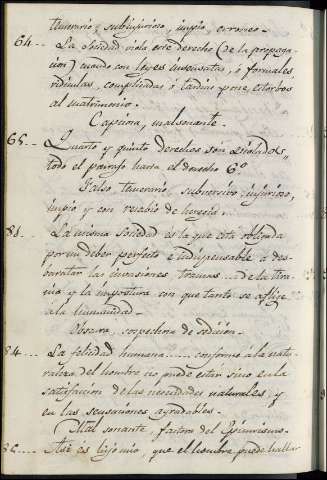 temerario, subinjurioso, impio, erroneo.
64... La Sociedad viola este derecho (de la propaga-
cion) cuando con leyes insensatas, ó formales
ridiculas, complicadas ó tardias pone estorbos
al matrimonio.
Capciosa, malsonante.
65... Quarto y quinto derechos son violados,,
todo el parrafo hasta el derecho 6º
Falso temerario, subversivo, injurioso,
impio y con resabio de heregia.
La misma Sociedad es la que está obligada
por un deber perfecto é indispensable á des-
baratar las invasiones de la tira-
nia y la impostura con que tanto se aflige
á la humanidad.
Obscura, sospechosa de sedicion.
84... La felicidad humana...... conforme á la natu-
raleza del hombre no puede estar sino en la
satisfaccion de las necesidades naturales, y
en las sensaciones agradables.
Mal sonante, fautora del Epicurismo.
Asi es hijo mio, que el hombre puede hallar